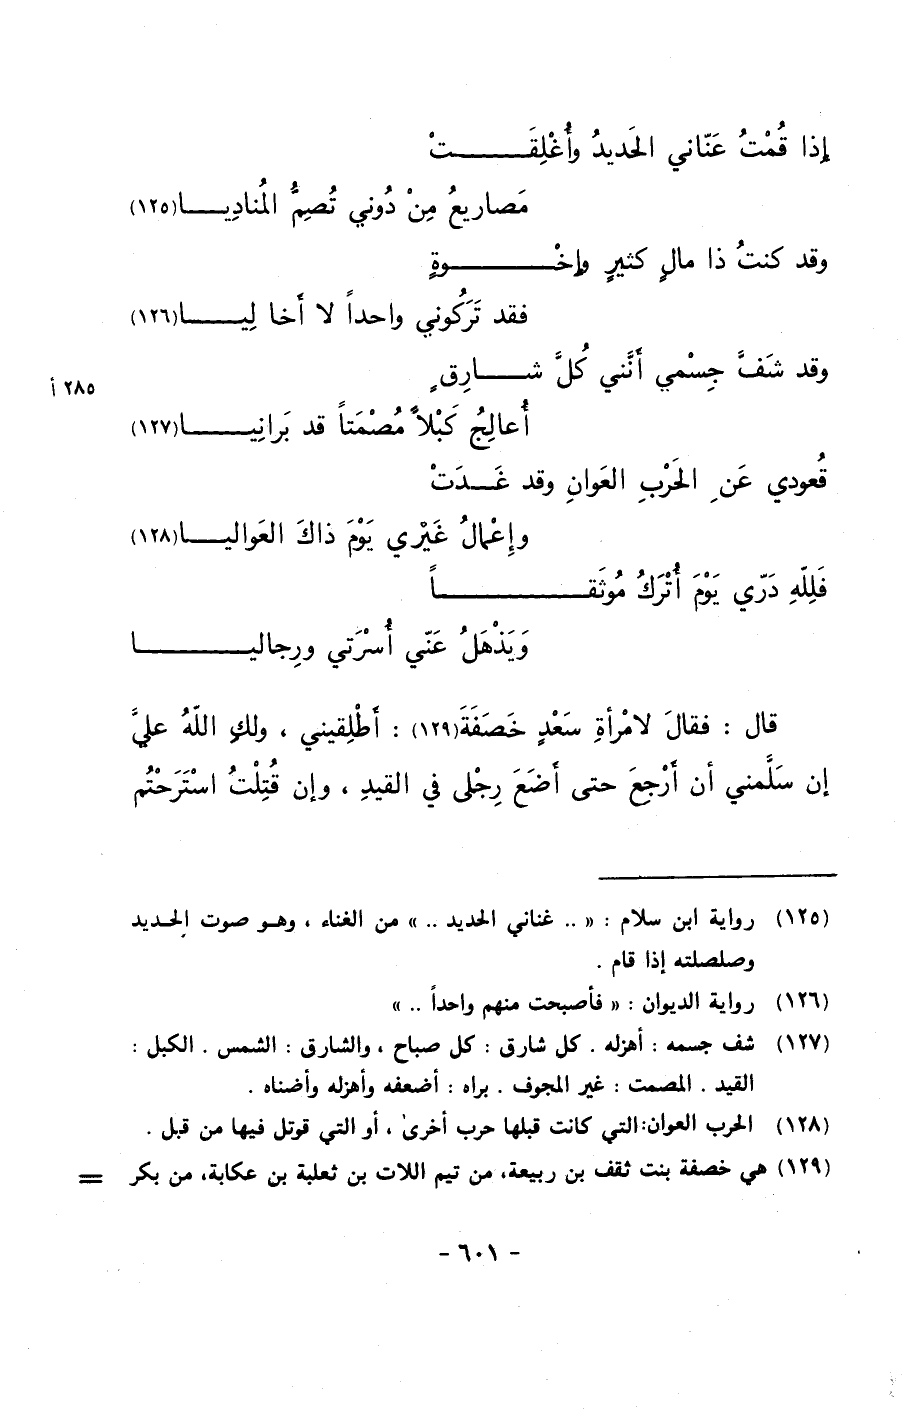 إذا قُمْتُ عَنّاني الحَديدُ وأُغْلِقَـــــتْ
مَصاريعُ مِنْ دُوني تُصِمُّ المُنادِيـــا(١٢٥)
وقد كنتُ ذا مالٍ كثيرٍ وإخْـــــوةٍ
فقد تَرَكُوني واحداً لا أَخا لِيـــــا(١٢٦)
وقد شَفَّ جِسْمي أَنَّني كُلَّ شـــارِقٍ
٢٨٥ أ
أُعالِجُ كَبْلاً مُصْمَتاً قد بَرانِيـــــا(١٢٧)
قُعودي عَنِ الحَرْبِ العَوانِ وقد غَـــدَتْ
وإِعْمالُ غَيْري يَوْمَ ذاكَ العَواليـــا(١٢٨)
فَلِلّهِ دَرّي يَوْمَ أُتْرَكُ مُوثَقـــــــاً
وَيَذْهَلُ عَنّي أُسْرَتي ورِجاليـــــــا
قال : فقالَ لامْرأةِ سَعْدٍ خَصَفَةَ(١٢٩) : أَطْلِقيني ، ولكِ اللّهُ عليَّ
إن سَلَّمني أن أَرْجِعَ حتى أَضَعَ رِجْلي في القيدِ ، وإن قُتِلْتُ اسْتَرَحْتُم
(١٢٥) رواية ابن سلام : « .. غناني الحديد .. » من الغناء ، وهـو صوت الحـديد
وصلصلته إذا قام .
(١٢٦) رواية الديوان : « فأصبحت منهم واحداً .. »
(١٢٧) شف جسمه : أهزله . كل شارق : كل صباح ، والشارق : الشمس . الكبل :
القيد . المصمت : غير المجوف . براه : أضعفه وأهزله وأضناه .
(١٢٨) الحرب العوان:التي كانت قبلها حرب أخرىٰ ، أو التي قوتل فيها من قبل .
(١٢٩) هي خصفة بنت ثقف بن ربيعة، من تيم اللات بن ثعلبة بن عكابة، من بكر =
- ٦٠١ -